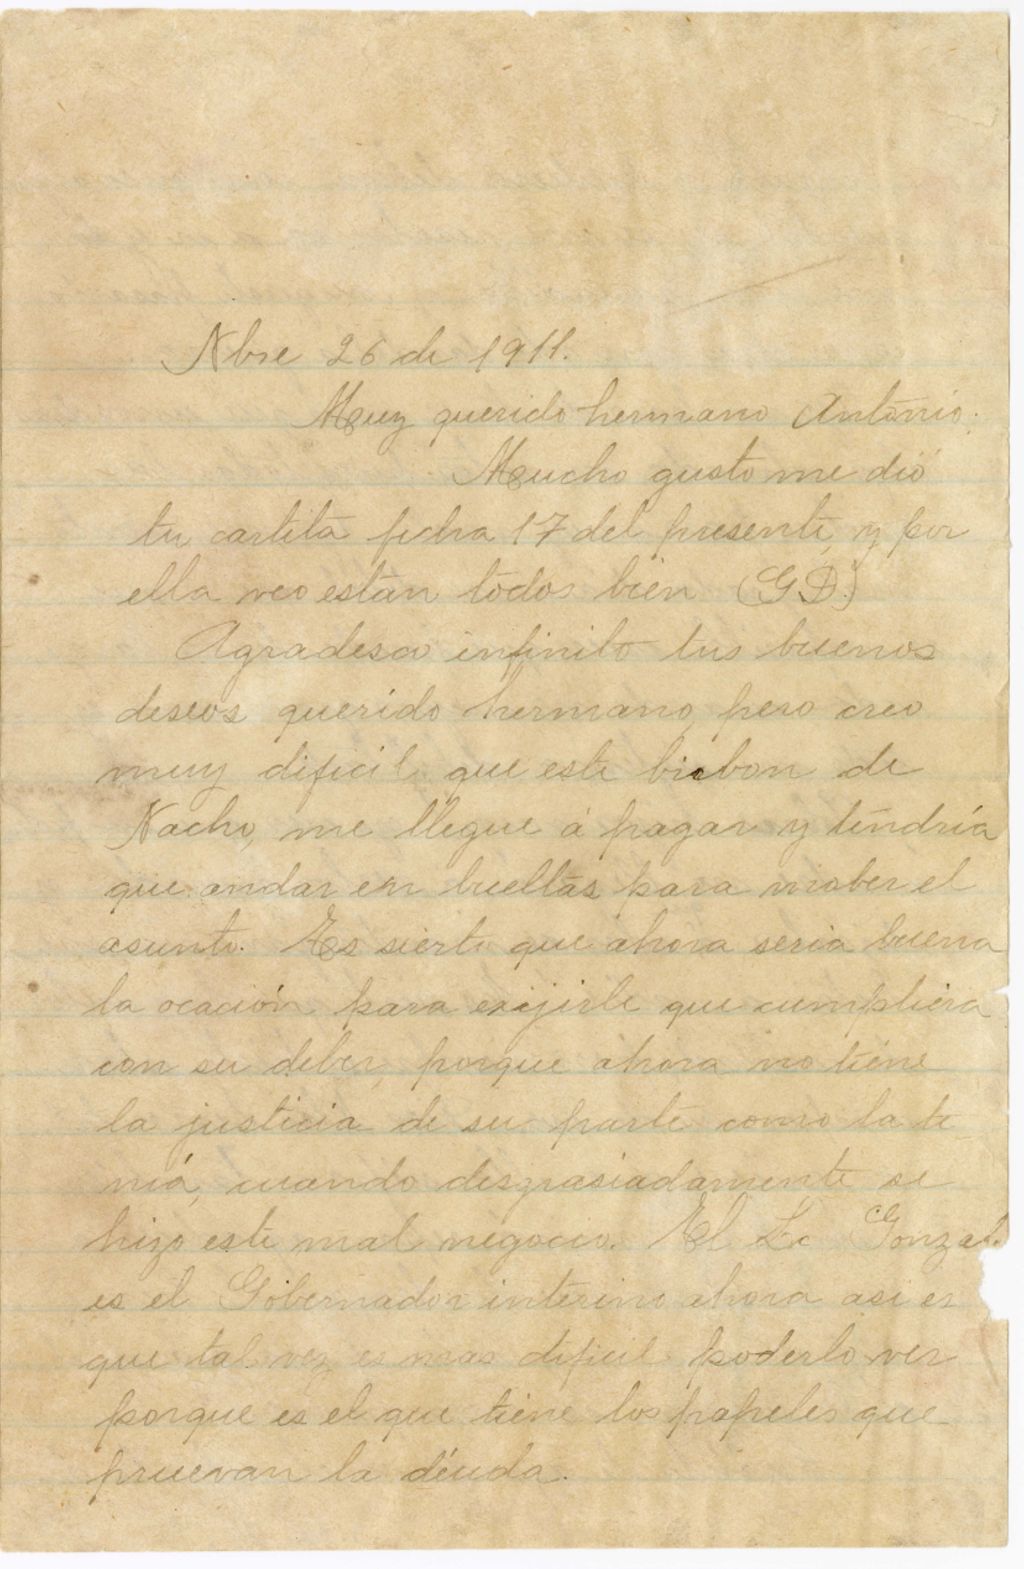 Nbre 26 de 1911.
Muy querido hermano Antonio.
Mucho gusto me dió
tu cartita fecha 17 del presente, y por
ella veo estan todos bien (G D.)
Agradesco infinito tus buenos
deseos querido hermano, pero creo
muy dificil que este bribon de
Nacho, me llegue á pagar y tendría
que andar en bueltas para mober el
asunto. Es sierto que ahora seria buena
la ocación para exijirle que cumpliera
con su deber, porque ahora no tiene
la justicia de su parte como la te
niá, cuando desgrasiadamente se
hizo este mal negocio. El Lc Gonzal.
es el Gobernador interino ahora asi es
que tal vez es mas dificil poderlo ver
porque es el que tiene los papeles que
pruevan la deuda.